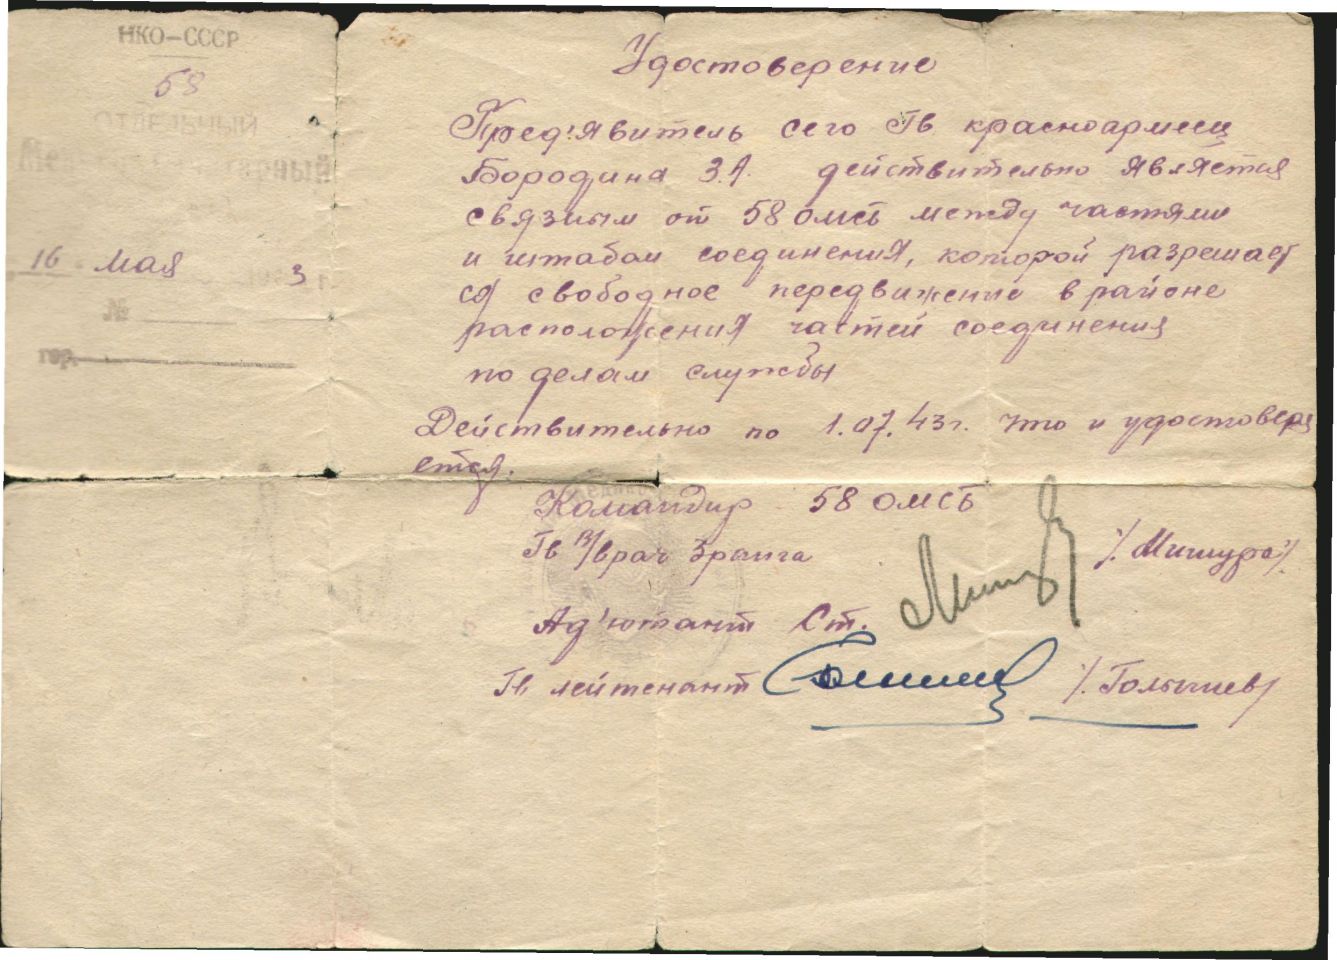 НКО-СССР
58
ОТДЕЛЬНЫЙ
16 Мая 3
№
гор.
Удостоверение
Пред'явитель сего Гв красноармеец
Бородина З.А. действительно является
связным от 58 омсб между частями
и штабом соединения, которой разрешает
ся свободное передвижение в районе
расположения частей соединения
по делам службы
Действительно по 1.07.43г. что и удостоверя
ется.
Командир 58 омсб
Гв в/врач 3 ранга /Мишура/.
Ад'ютант Ст.
Гв лейтенант /Голычев/